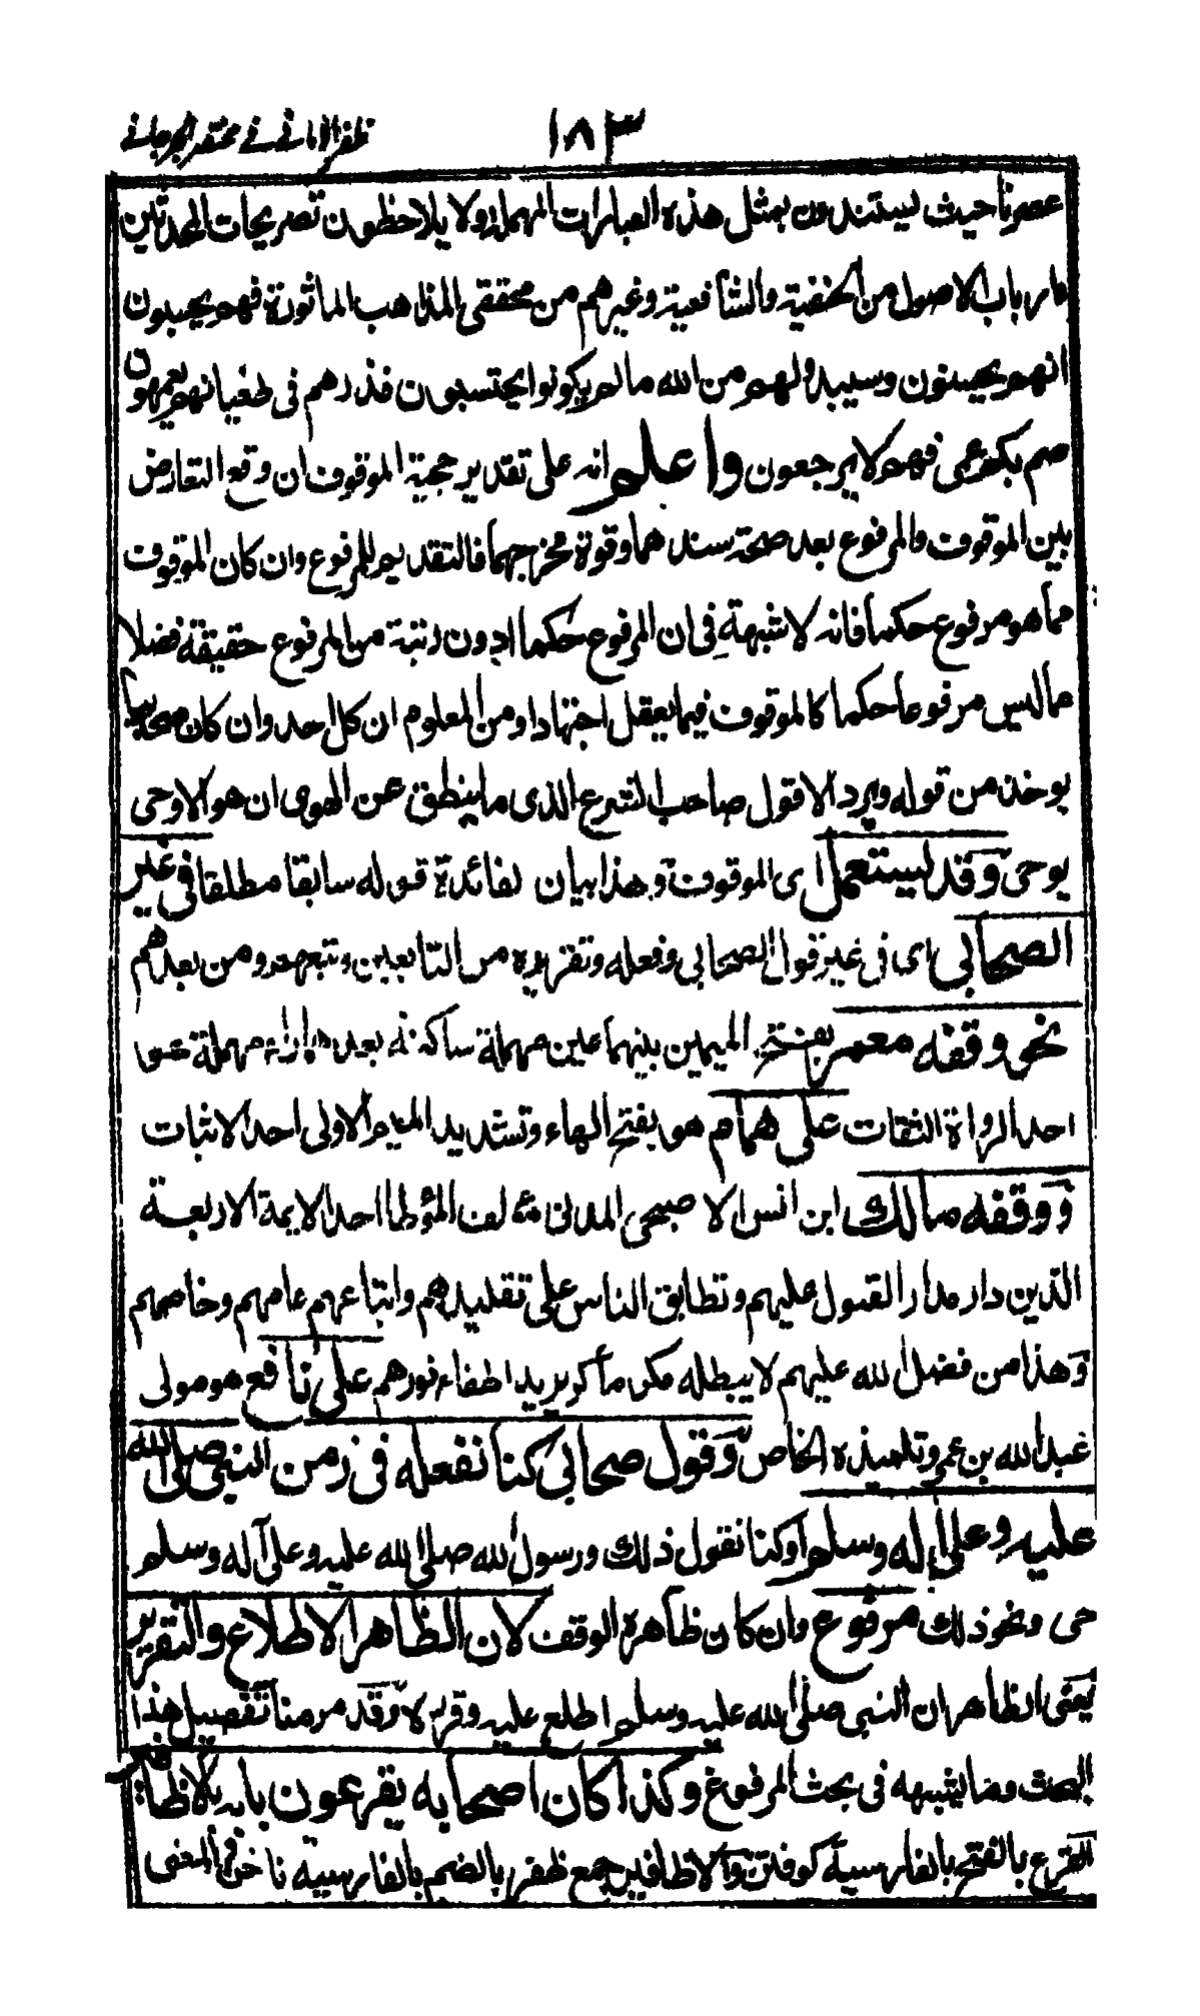 ١٨٣ ظفر الاماني في مختصر الجرجاني
عصرنا حيث يستندون بمثل هذه العبارات المهملة ولا يلاحظون تصريحات المحدثين
وارباب الاصول من الحنفية والشافعية وغيرهم من محققي المذاهب الماثورة فهم يحسبون
انهم يحسنون وسيبدو لهم من الله ما لم يكونوا يحتسبون فذرهم في طغيانهم يعمهون
صم بكم عمي فهم لا يرجعون واعلم انه على تقدير حجية الموقوف ان وقع التعارض
بين الموقوف والمرفوع بعد صحة سندهما وقوة مخرجهما فالتقديم للمرفوع وان كان الموقوف
مما هو مرفوع حكما فانه لا شبهة في ان المرفوع حكما ادون رتبة من المرفوع حقيقة فضلا
مما ليس مرفوعا حكما كالموقوف فيما يعقل اجتهادا ومن المعلوم ان كل احد وان كان صحابيا
يوخذ من قوله ويرد الا قول صاحب الشرع الذي ما ينطق عن الهوى ان هو الا وحي
يوحى وقد يستعمل اى الموقوف وهذا بيان لفائدة قوله سابقا مطلقا في غير
الصحابي اى في غير قول الصحابي وفعله وتقريره من التابعين وتبعهم ومن بعدهم
نحو وقفه معمر بفتح الميمين بينهما عين مهملة ساكنة بعدها راء مهملة هو
احد الرواة الثقات على همام هو بفتح الهاء وتشديد الميم الاولى احد الاثبات
ووقفه مالك ابن انس الاصبحي المدني مؤلف المؤطا احد الايمة الاربعة
الذين دار مدار القبول عليهم وتطابق الناس على تقليدهم واتباعهم عامهم وخاصهم
وهذا من فضل الله عليهم لا يبطله مكر ماكر يريد اطفاء نورهم على نافع هو مولى
عبد الله بن عمر وتلميذه الخاص وقول صحابي كنا نفعله في زمن النبي صلى الله
عليه وعلى اله وسلم او كنا نقول ذلك ورسول الله صلى الله عليه وعلى آله وسلم
حي ونحو ذلك مرفوع وان كان ظاهره الوقف لان الظاهر الاطلاع والتقرير
يعني الظاهر ان النبي صلى الله عليه وسلم اطلع عليه وقرره وقد مر منا تفصيل هذا
البحث وما يشبهه في بحث المرفوع وكذا كان اصحابه يقرعون بابه بالاظافير
القرع بالفتح بالفارسية كوفتن والاظافير جمع ظفر بالضم بالفارسية ناخن والمعنى